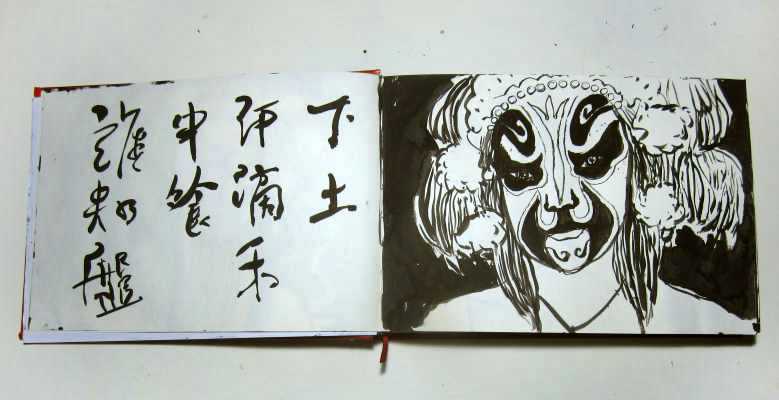 誰知盤
中餐
汗滴禾
下土